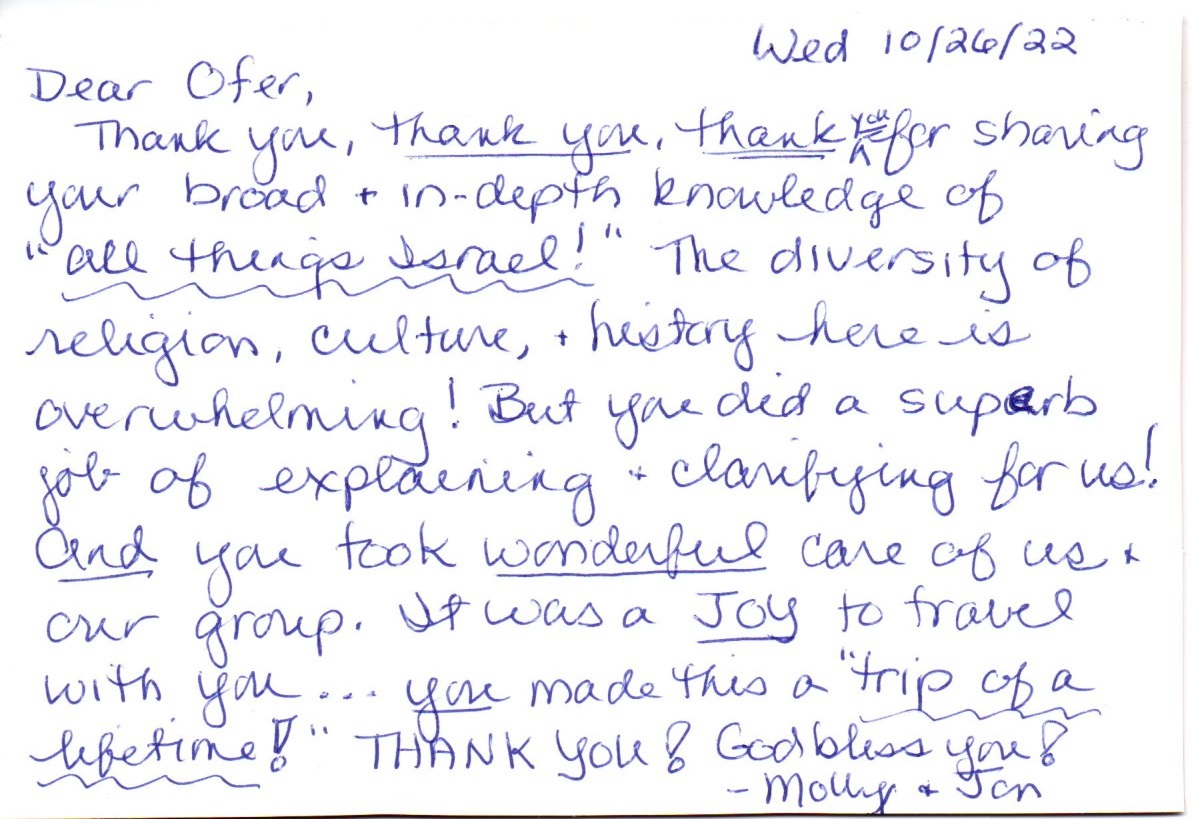 Wed 10/26/22
Dear Ofer,
Thank you, thank you, thank you for sharing
your broad + in-depth knowledge of
"all things Israel!" The diversity of
religion, culture, + history here is
overwhelming! But you did a superb
job of explaining + clarifying for us!
And you took wonderful care of us +
our group. It was a JOY to travel
with you... you made this a "trip of a
lifetime!" THANK YOU! God bless you!
- Molly + Jon